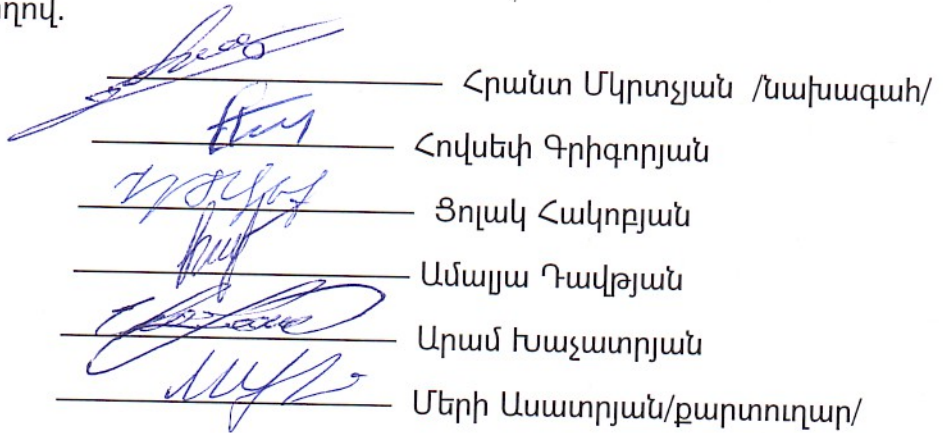 ղով.
Հրանտ Մկրտչյան /նախագահ/
Հովսեփ Գրիգորյան
Ցոլակ Հակոբյան
Ամալյա Դավթյան
Արամ Խաչատրյան
Մերի Ասատրյան/քարտուղար/